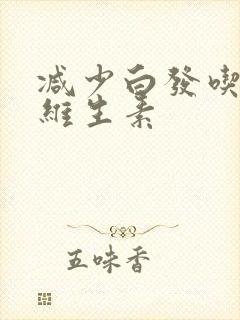 减少白發喫
維生素
五味香